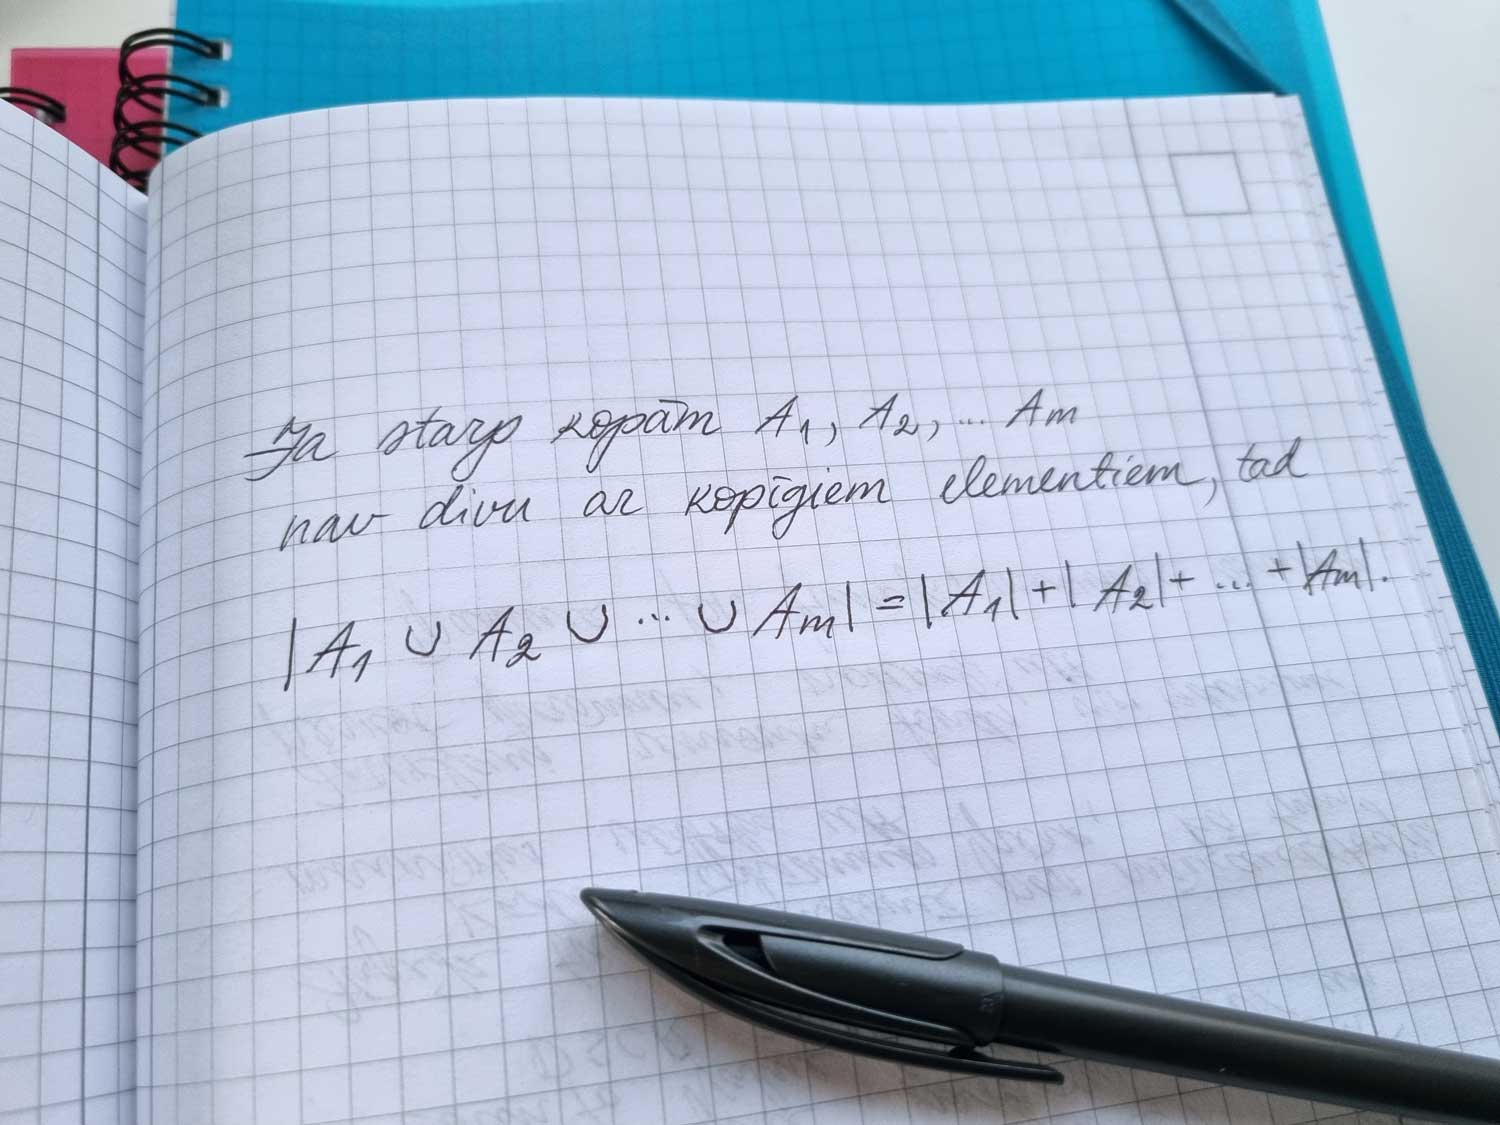 Ja starp kopām A₁, A₂, ... Am
nav divu ar kopīgiem elementiem, tad
|A₁ ∪ A₂ ∪ ... ∪ Am| = |A₁| + |A₂| + ... + |Am|.